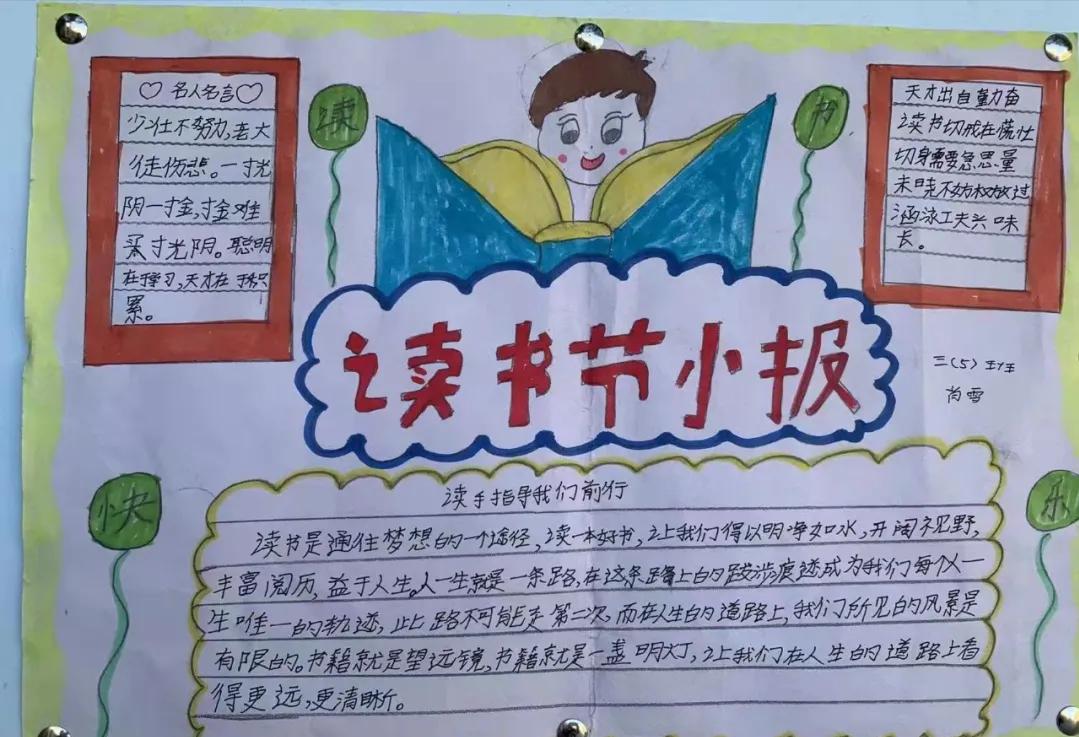 ♡名人名言♡
少壮不努力,老大
徒伤悲。一寸光
阴一寸金,寸金难
买寸光阴。聪明
在于学习,天才在于积
累。
读
书
天才出自勤奋
读书切戒在慌忙
切身需要急思量
未晓不妨权放过
涵泳工夫兴味
长。
读书节小报
三(5)班
肖雪
快
乐
读书指导我们前行
读书是通往梦想的一个途径,读一本好书,让我们得以明净如水,开阔视野,
丰富阅历,益于人生。人一生就是一条路,在这条路上的跋涉痕迹成为我们每个一
生唯一的轨迹,此路不可能走第二次,而在人生的道路上,我们所见的风景是
有限的。书籍就是望远镜,书籍就是一盏明灯,让我们在人生的道路上看
得更远,更清晰。